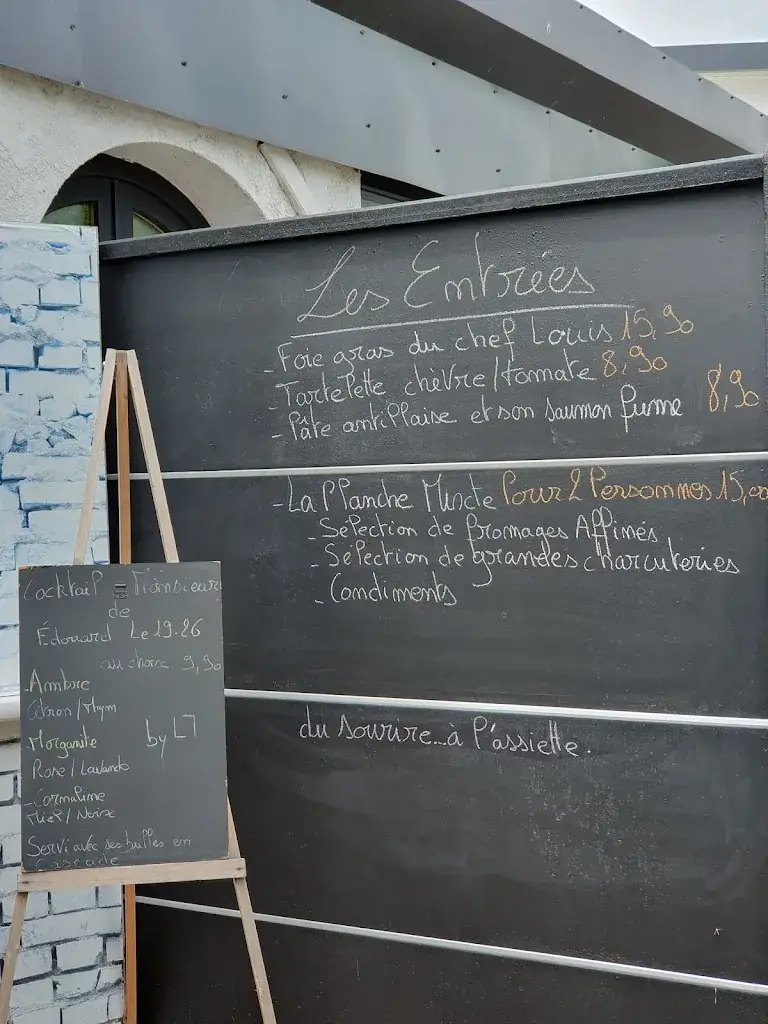 Les Entrées
- Foie gras du chef Louis 15,90
- Tartelette chèvre/tomate 8,90
- Pâte antillaise et son saumon fumé 8,90
- La Planche Mixte Pour 2 Personnes 15,00
- Sélection de fromages Affinés
- Sélection de grandes charcuteries
- Condiments
du sourire...à l'assiette.
Cocktail = Monsieur
de
Édouard Le 19.26
au choix 9,90
- Ambre
Citron/Thym
- Morganite
Rose/Lavande
by LT
- Cornaline
Miel/
Servi avec ses bulles en
Cascade